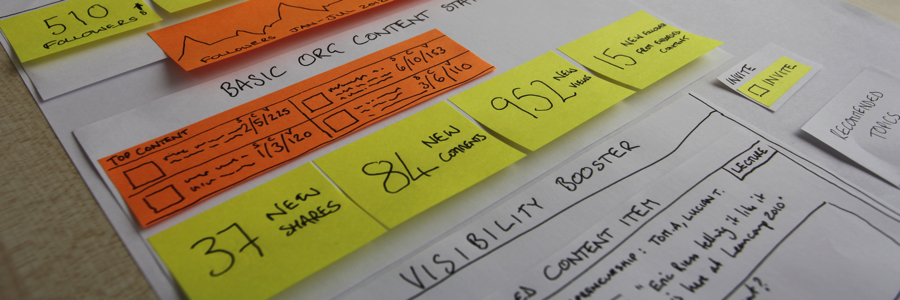 510
FOLLOWERS
FOLLOWERS JAN-JUL 2012
BASIC ORG CONTENT
TOP CONTENT
S C V
2/5/225
1/3/120
S C V
6/10/153
3/6/110
37 NEW
SHARES
84 NEW
COMMENTS
952 NEW
VIEWS
15 NEW FOLLOWERS
FROM
CONTENT
INVITE
INVITE
TOPICS
VISIBILITY BOOSTER
CONTENT ITEM
LECTURE
: TOM A, LUCIAN T.
"Eric Ries telling it like it
at Leancamp 2010"